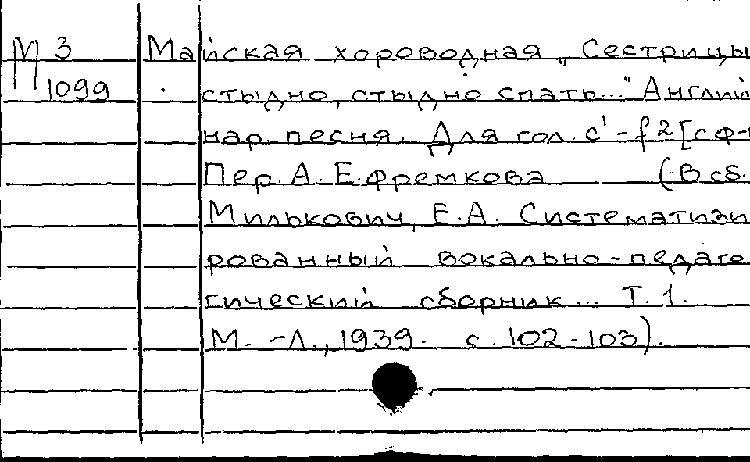 М 3 Майская хороводная „Сестрицы
1099 стыдно, стыдно спать..." Англий
нар песня. Для гол. c'-f2 [с ф-
Пер А. Ефремкова (В сб.
Милькович, Е.А. Системати
рованный вокально-педаго
гический сборник... Т. 1.
М.-Л., 1939. с. 102-103).